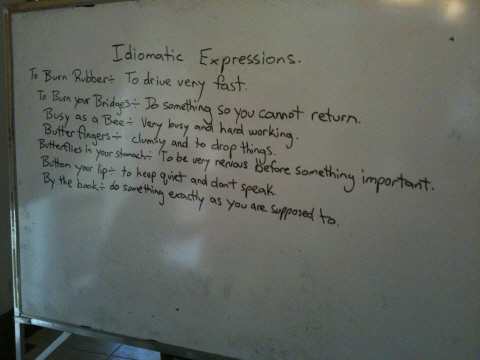 Idiomatic Expressions.
To Burn Rubber÷ To drive very fast.
To Burn your Bridges÷ Do something so you cannot return.
Busy as a Bee÷ Very busy and hard working.
Butter fingers÷ clumsy and to drop things.
Butterflies in your stomach÷ To be very nervous before something important.
Button your lip÷ to keep quiet and don't speak
By the book÷ do something exactly as you are supposed to.